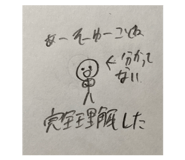 あーそーゆーことね
←分かって
ない
完全に理解した